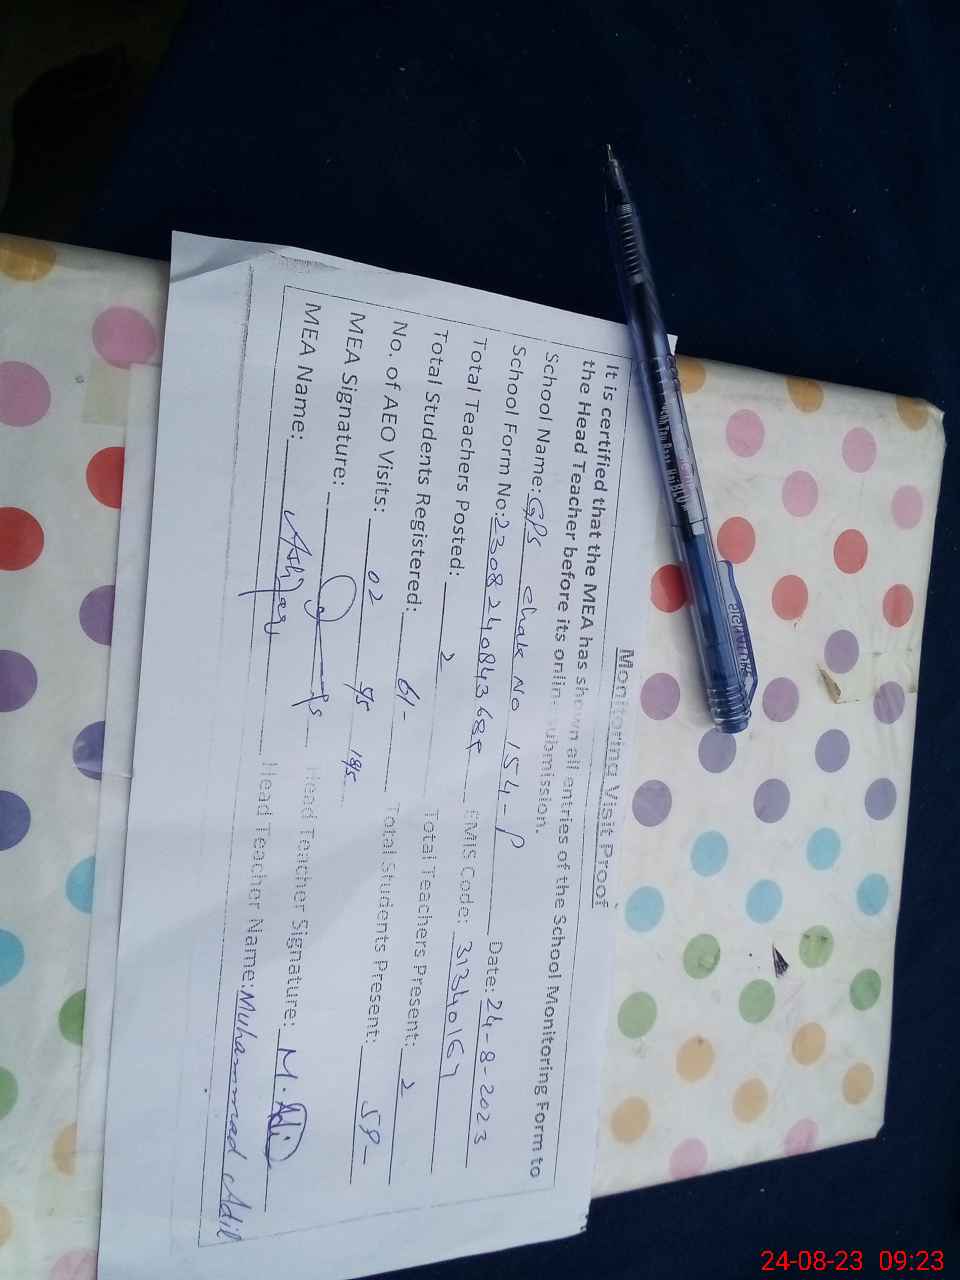 Monitoring Visit Proof
It is certified that the MEA has shown all entries of the School Monitoring Form to
the Head Teacher before its online submission.
School Name: GPS Chak No 154-P Date: 24-8-2023
School Form No: EMIS Code: 31340167
Total Teachers Posted: 2 Total Teachers Present: 2
Total Students Registered: 61- Total Students Present: 59-
No. of AEO Visits: 02
MEA Signature: Head Teacher Signature: M. Adil
MEA Name: Head Teacher Name: Muhammad Adil
24-08-23 09:23